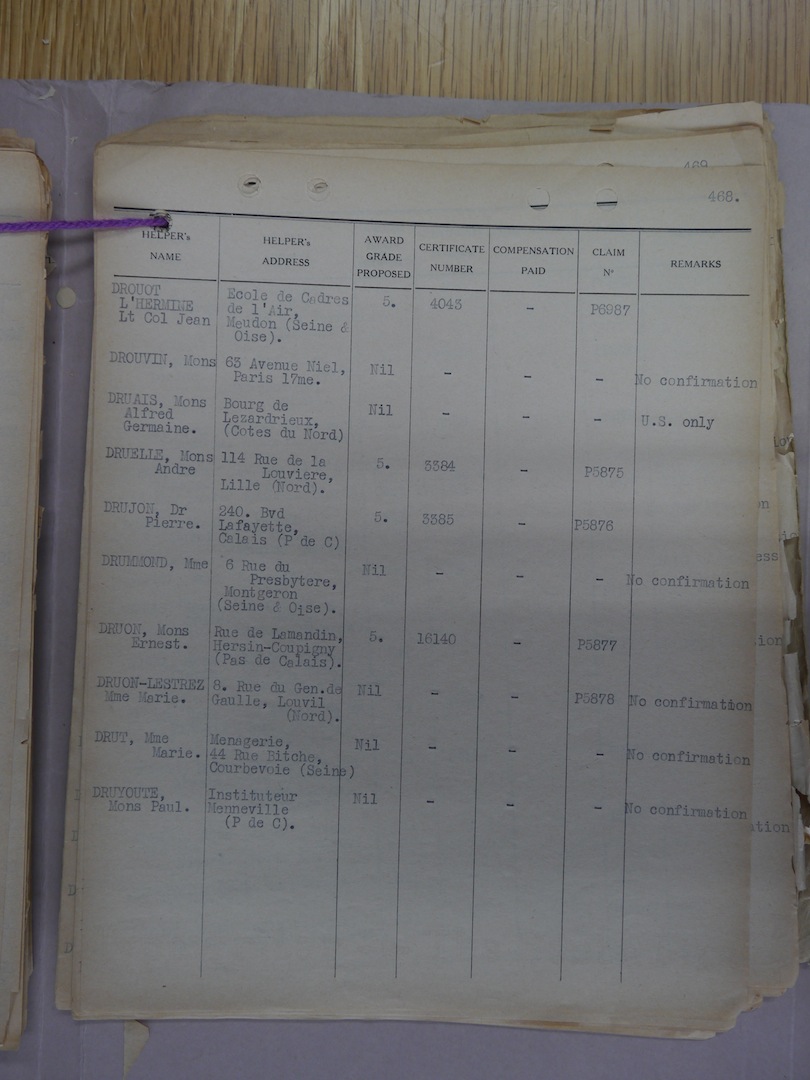 469
468.
HELPER's NAME HELPER's ADDRESS AWARD GRADE PROPOSED CERTIFICATE NUMBER COMPENSATION PAID CLAIM Nº REMARKS
DROUOT Ecole de Cadres 5. 4045 - P6987
L'HERMINE de l'Air,
Lt Col Jean Meudon (Seine &
Oise).
DROUVIN, Mons 63 Avenue Niel, Nil - - - No confirmation
Paris 17me.
DRUAIS, Mons Bourg de Nil - - - U.S. only
Alfred Lezardrieux,
Germaine. (Cotes du Nord)
DRUELLE, Mons 114 Rue de la 5. 3384 - P5875
Andre Louviere,
Lille (Nord).
DRUJON, Dr 240. Bvd 5. 3385 - P5876
Pierre. Lafayette,
Calais (P de C)
DRUMMOND, Mme 6 Rue du Nil - - - No confirmation
Presbytere,
Montgeron
(Seine & Oise).
DRUON, Mons Rue de Lamandin, 5. 16140 - P5877
Ernest. Hersin-Coupigny
(Pas de Calais).
DRUON-LESTREZ 8. Rue du Gen.de Nil - - P5878 No confirmation
Mme Marie. Gaulle, Louvil
(Nord).
DRUT, Mme Menagerie, Nil - - - No confirmation
Marie. 44 Rue Bitche,
Courbevoie (Seine)
DRUYOUTE, Instituteur Nil - - - No confirmation
Mons Paul. Menneville
(P de C).